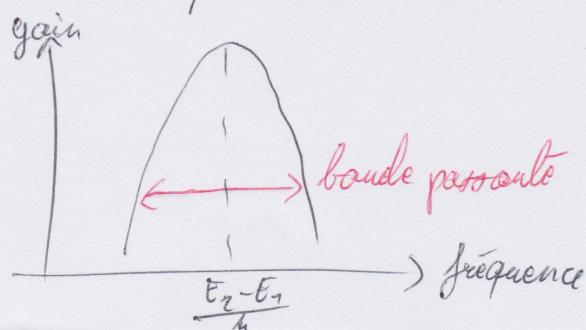 gain
bande passante
fréquence
E₂-E₁
h